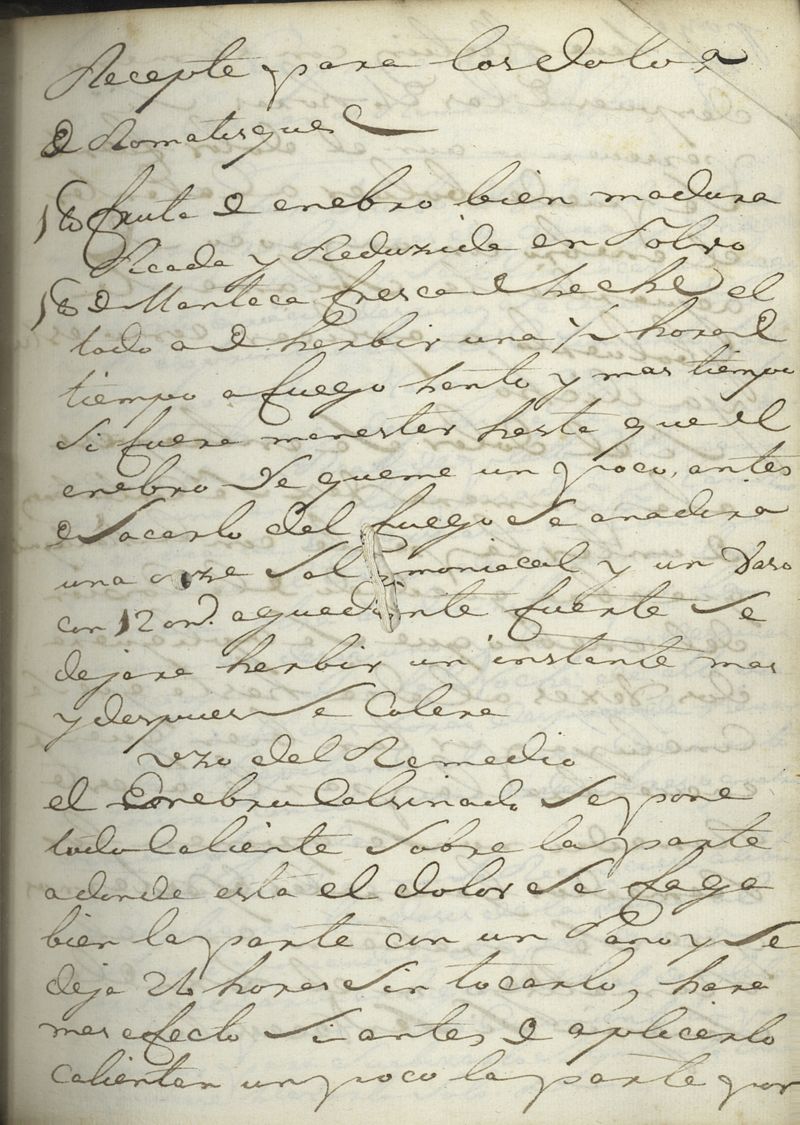 Recepte para los dolor
de Romatisques
1 ℔ fruta de enebro bien madura
Picada y Reduzida en Polvo
1 ℔ de Manteca fresca de heche el
todo a de herbir una ½ hora de
tiempo a fuego hento y mas tiempo
si fuera menester hasta que el
enebro se queme un poco, antes
de sacarlo del fuego se anadira
una onze sal amoniacal y un Vaso
con 12 on.s aguardiente fuerte se
dejara herbir un instante mas
y despues se Colera
uzo del Remedio
el Enebro Calsinado se pone
todo Caliente sobre la parte
adonde esta el dolor se faga
bien la parte con un Pano y se
deja 24 horas sin tocarlo, hara
mas efecto si antes de aplicarlo
calientan un poco la parte por